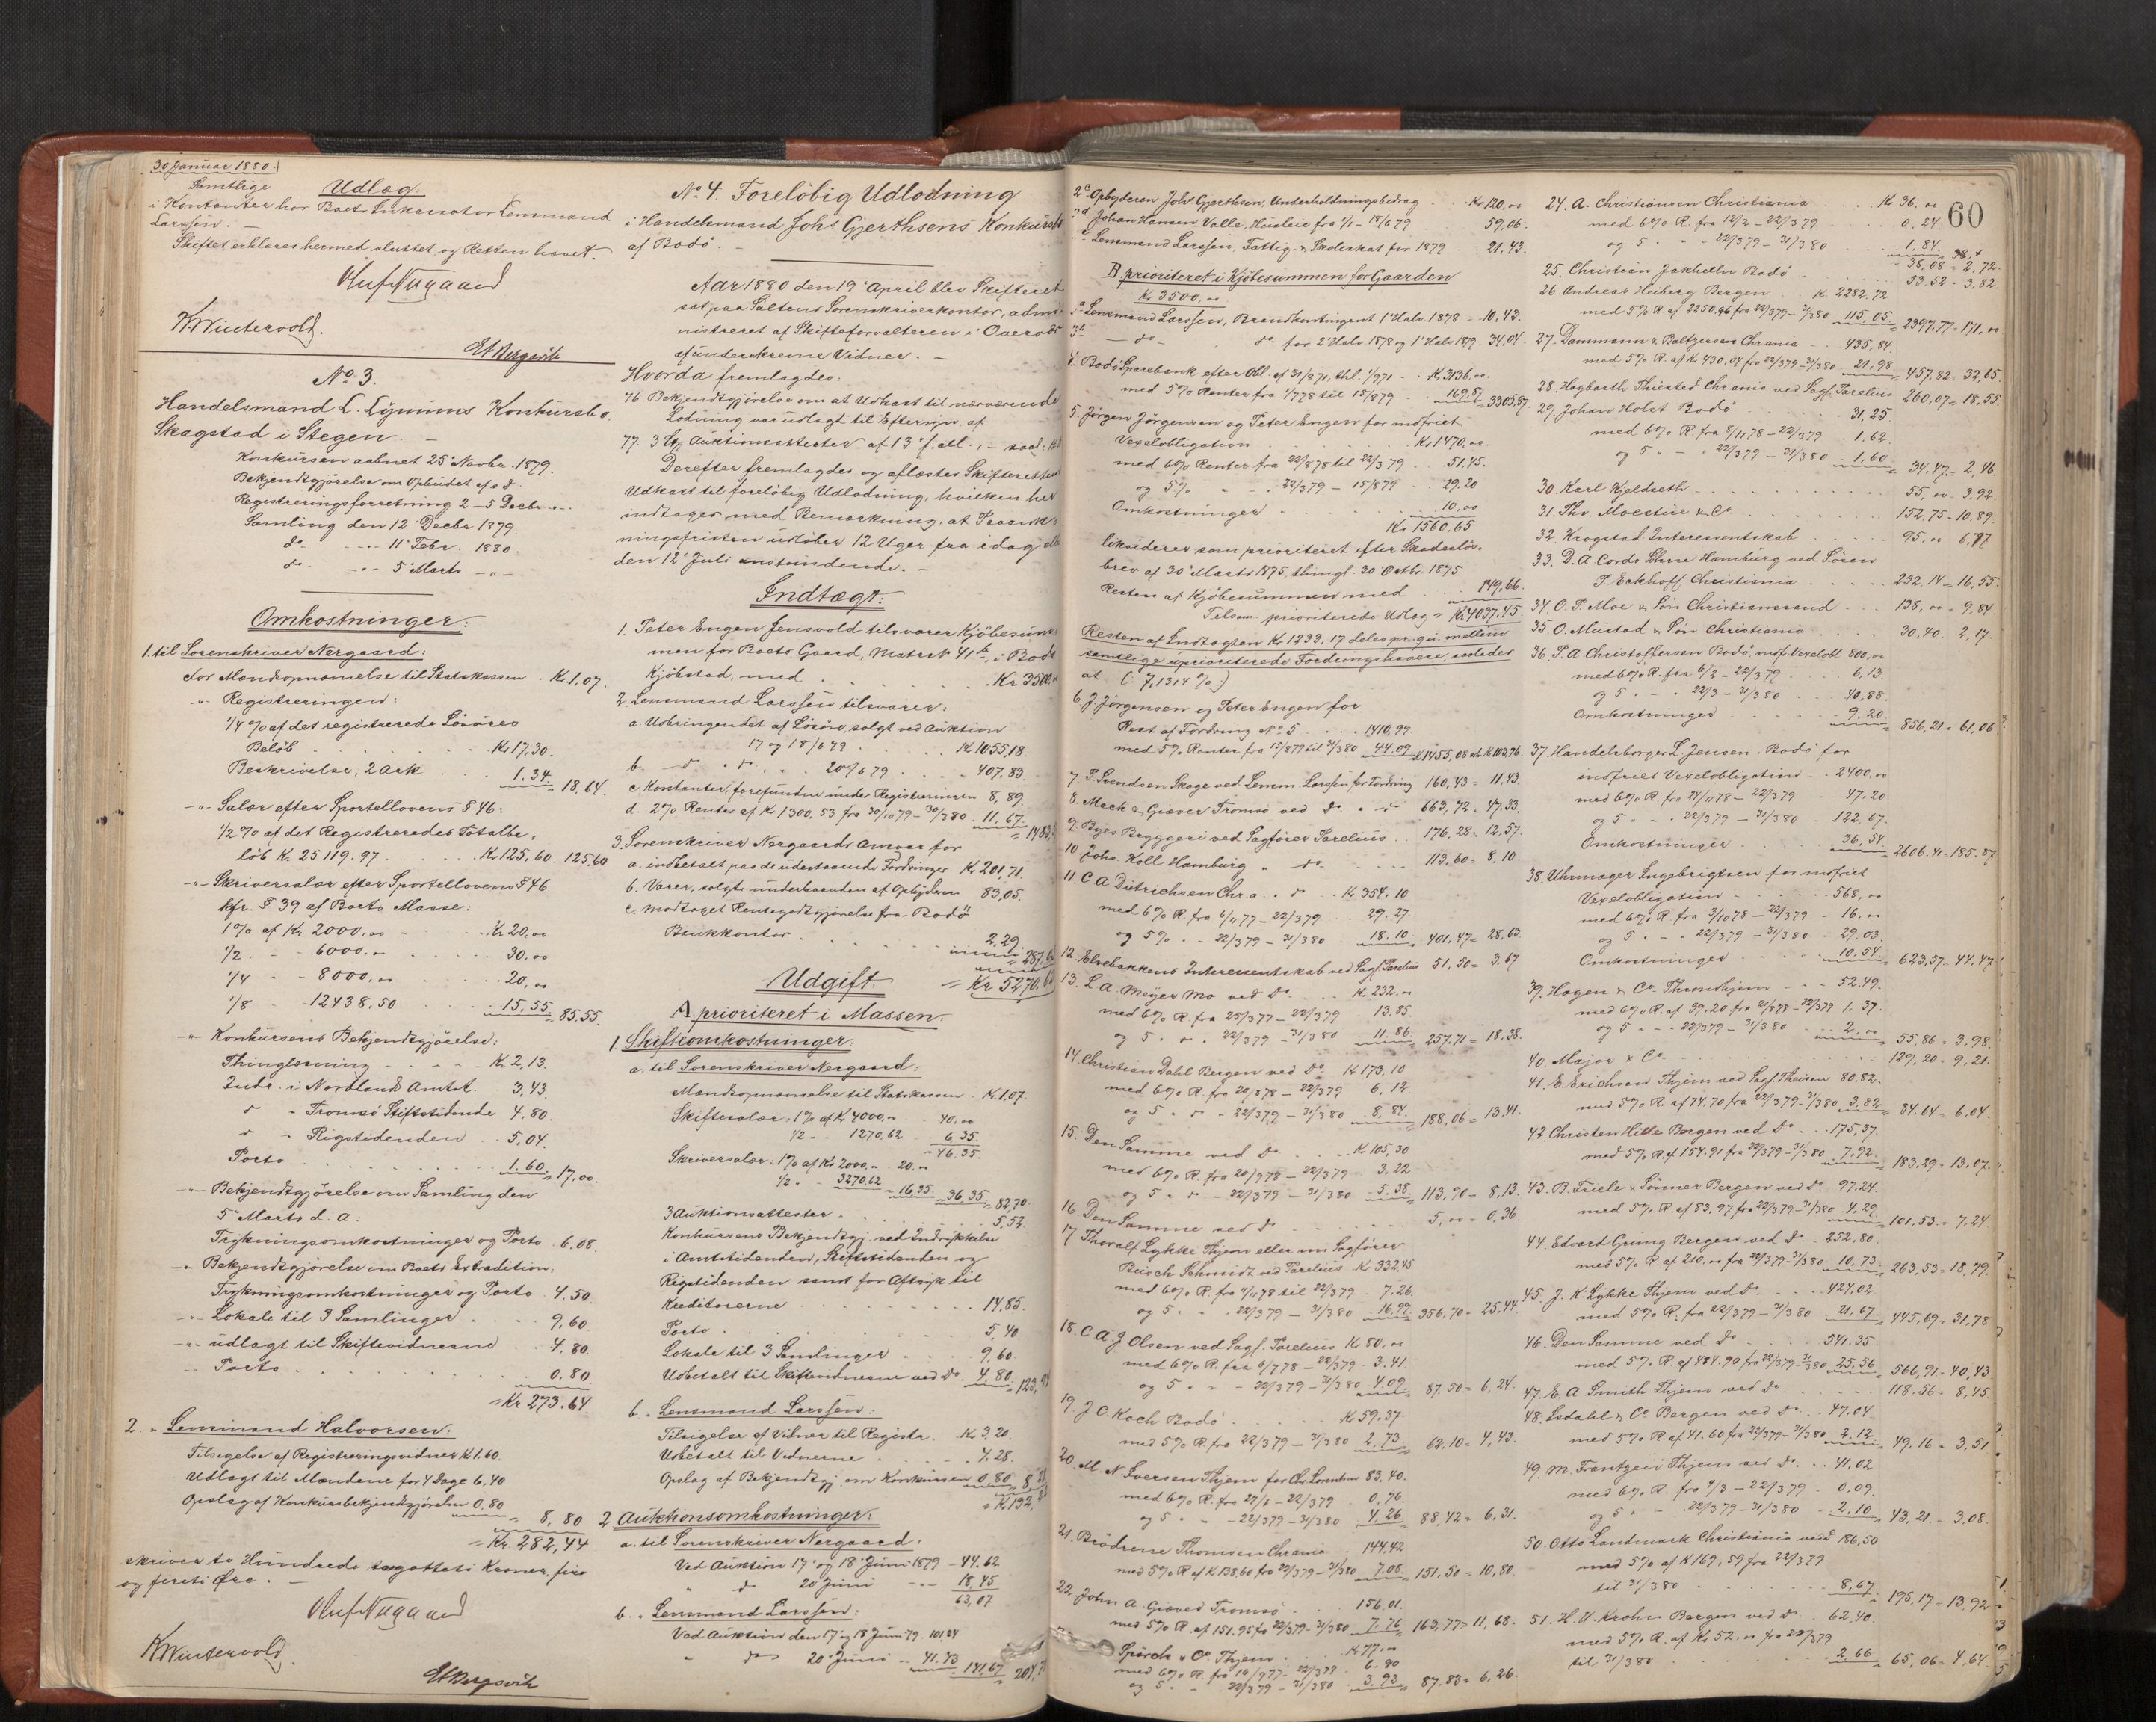 30 Januar 1880.
Samtlige Udlæg
i Kontanter har Boets Inkassator Lensmand
Larssen. —
Skiftet erklæres hermed sluttet og Retten hævet. —
Oluf Nergaard
K. Wintervold.
No 3.
Handelsmand L. Konkursbo,
Skagstad i Stegen. —
Konkursen aabnet 25 Novbr. 1879.
Bekjendtgjørelse om Opbudet af s. d.
Registreringsforretning 2 - 5 Decbr. -"-
Samling den 12 Decbr 1879
do - -"- 11 Febr. 1880.
do - -"- 5 Marts -"-
Omkostninger:
1. til Sorenskriver Nergaard:
for Mændsopnævnelse til Statskassen . Kr 1,07.
-"- Registreringen:
1/4 % af det registrerede Løsøres
Beløb . . . Kr 17,30.
Beskrivelse, 2 Ark . . 1,34 = 18,64.
-"- Salær efter Sportellovens § 46:
1/2 % af det Registreredes Totalbe-
løb Kr. 25119.97 . . . Kr 125,60 125,60
-"- Skriversalær efter Sportellovens § 46
kfr. § 39 af Boets Masse:
1 % af Kr 2000,00 - Kr 20,00
1/2 - - 6000,00 . . 30,00
1/4 - - 8000,00 . . 20,00
1/8 - - 12438,50 . . 15,55 = 85,55.
-"- Konkursens Bekjendtgjørelse:
Thinglæsning . . . K 2,13.
Indr. i Nordlands Amtst. 3,43.
do " Tromsø Stiftstidende 4,80.
do " Rigstidenden . . 5,04.
Porto . . . 1,60 = 17,00.
-"- Bekjendtgjørelse om Samling den
5 Marts d. A:
Trykningsomkostninger og Porto . 6,08.
-"- Bekjendtgjørelse om Boets Extradition:
Trykningsomkostninger og Porto . 4,50.
-"- Lokale til 3 Samlinger . . 9,60.
-"- udlagt til Skiftevidnerne . . 4,80.
-"- Porto . . . 0,80
= Kr 273,64
2. " Lensmand Halvorsen:
Tilsigelse af Registreringsvidner K 1,60.
Udlagt til Mændene for 4 Dage 6,40
Opslag af Konkursbekjendtgjørelsen 0,80
= 8,80
= Kr. 282,44
skriver to Hundrede to og otteti Kroner, fire
og fireti Øre. —
Oluf Nergaard
K. Wintervold.
No 4. Foreløbig Udlodning
i Handelsmand Johs Gjerthsens Konkursbo
af Bodø. —
Aar 1880 den 19 April blev Skifteret
sat paa Saltens Sorenskriverkontor, admi-
nistreret af Skifteforvalteren i Overvær
af underskrevne Vidner. —
Hvorda fremlagdes:
76. Bekjendtgjørelse om at Udkast til nærværende
Lodning var udlagt til Eftersyn af
77. 3 Auktionsattester af 13 f.
Derefter fremlagdes og oplæstes Skifterettens
Udkast til foreløbig Udlodning, hvilken her
indtages med Bemærkning, at Paaank-
ningsfristen udløber 12 Uger fra idag eller
den 12 Juli anstundende. —
Indtægt:
1. Peter Engen Jensvold tilsvarer Kjøbesum-
men for Boets Gaard, Matr No 41 b, i Bodø
Kjøbstad, med . . . Kr 3500,00
2. Lensmand Larssen tilsvarer:
a. Udbringendet af Løsøre, solgt ved Auktion
17 og 18/6 79 . . . K 1055,18
b. - do - do . . 20/6 79 . . . 407.83.
c. Kontanter, forefundne under Registreringen 8,89.
d. 2 % Renter af K 1300,53 fra 30/10 79 - 30/3 80 . 11,67.
3. Sorenskriver Nergaards Ansvar for
a. indbetalt paa de udestaaende Fordringer Kr 201,71.
b. Varer, solgte underhaanden af Opbyderen 83,05.
c. modtaget Rentegodtgjørelse fra Bodø
Bankkontor . . . 2,29
= Kr 5270,62
Udgift.
A prioriteret i Massen.
1 Skifteomkostninger.
a. til Sorenskriver Nergaard:
Mændsopnævnelse til Statskassen . K 1,07.
Skiftesalær: 1 % af K 4000,00 . 40,00
1/2 - - 1270,62 6,35.
= 46,35.
Skriversalær: 1 % af Kr 2000,- . 20,00
1/2 - - 3270,62 = 16,35 = 36,35 = 82,70.
3 Auktionsattester . . . 5,52.
Konkursens Bekjendtgj. ved Indrykkelse
i Amtstidenden, Stiftstidenden og
Rigstidenden samt for Aftryk til
Kreditorerne . . . 14,85.
Porto . . . 5,40
Lokale til 3 Samlinger . . . 9,60.
Udbetalt til Skiftevidnerne ved Do . 4,80.
b. . Lensmand Larssen:
Tilsigelse af Vidner til Registr. Kr 3,20.
Udbetalt til Vidnerne . . 4.28.
Opslag af Bekjendtgj. om Konkursen 0,80
2 Auktionsomkostninger:
a. til Sorenskriver Nergaard:
Ved Auktion 17 og 18 Juni 1879 - 44.62
" do 20 Juni -"- 18,45
63,07
b. . Lensmand Larssen:
Ved Auktion den 17 og 18 Juni 79. 101,24
" do 20 Juni - 41.43 = 141,67
2 c Opbyderen Johs Gjerthsen, Underholdningsbidrag . . Kr 120,00
2 d. Johan Hansen Valle, Husleie fra 1/1 - 18/6 79 59,06.
Lensmand Larssen, Fattig- & Skoleskat for 1879 . . 21.43.
B. prioriteret i Kjøbesummen for Gaarden
Kr 3500,00
3 a Lensmand Larssen, Brandkontingent 1 Halv. 1878 - 10,43.
3 b — do — do for 2 Halv. 1878 og 1 Halv 1879. 34,04.
4. Bodø Sparebank efter Obl. af 31/8 71, thl. 1/9 71 . . Kr 3136,00.
med 5 % Renter fra 1/7 78 til 15/8 79 . 169,87 = 3305,87.
5. Jørgen Jørgensen og Peter Engen for indfriet
Vexelobligation . . . Kr 1470,00
med 6 % Renter fra 22/8 78 til 22/3 79 . . 51,45.
og 5 % " " 22/3 79 - 15/8 79 . . 29,20
Omkostninger . . . 10,00
Kr 1560,65
likviderer som prioriteret efter Skadesløs-
brev af 30 Marts 1875, thingl. 30 Octbr. 1875
Resten af Kjøbesummen med . . 149,66.
Tilsm. prioriterede Udlæg = Kr 4037,45.
Resten af Indtægten Kr 1233.17 deles pr. qv. mellem
samtlige upriorterede Fordringshavere, saaledes
at (: 7,1314 % :)
6. J. Jørgensen og Peter Engen for
Rest af Fordring No 5 . . 1410,99.
med 5 % Renter fra 15/8 79 til 31/3 80 44,09 = K 1455,08 = K 103,76.
7. P. Svendsen Skage ved Lensm. Larssen, for Fordring 160,43 = 11,43.
8. Mack & Giæver Tromsø ved do - do 663,72 = 47,33.
9. Byes Bryggeri ved Sagfører Parelius . . 176,28 = 12,57.
10 Johs. Koll Hamburg " do . . 113,60 = 8,10.
11. C A Ditrichsen Chr.a . " do . K 354,10
med 6 % R. fra 6/11 77 - 22/3 79 29,27.
og 5 % . - 22/3 79 - 31/3 80 18,10 = 401,47 = 28,63.
12. Elvebakkens Interessentskab ved Sagf. Parelius 51,50 = 3,67
13. L A. Meyer Mo ved Do . . K 232,00
med 6 % R fra 25/3 77 - 22/3 79 . 13,85.
og 5 . " 22/3 79 - 31/3 80 11,86 = 257,71 = 18,38.
14. Christian Dahl Bergen ved Do K 173,10
med 6 % R. fra 20/8 78 - 22/3 79 6,12
og 5 . " . 22/3 79 - 31/3 80 8,84 = 188,06 = 13,41.
15. Den Samme ved do . . K 105,30
med 6 % R. fra 20/9 78 - 22/3 79 3,22
og 5 . " 22/3 79 - 31/3 80 5,38 = 113,90 = 8,13.
16. Den Samme ved do . . . 5,00 = 0,36.
17 Thoralf Lykke Thjem eller nu Sagfører
Busch Schmidt ved Parelius K 332,45
med 6 % R. fra 4/11 78 til 22/3 79 . 7,26.
og 5 . . 22/3 79 - 31/3 80 16,99 = 356,70 = 25,44
18. C A J Olsen ved Sagf. Parelius K 80,00
med 6 % R. fra 6/7 78 - 22/3 79 . 3,41.
og 5 " - 22/3 79 - 31/3 80 4,09 = 87,50 = 6,24.
19. J C. Koch Bodø . . . K 59,37.
med 5 % R. fra 22/3 79 - 31/3 80 2,73 = 62,10 = 4,43.
20. M. N Iversen Thjem for Chr Lorentzen 83,40.
med 6 % R. fra 27/1 - 22/3 79 . 0,76.
og 5 " - 22/3 79 - 31/3 80 4,26 = 88,42 = 6,31.
21. Brødrene Thomsen Chrania . 144,42
med 5 % R af K 138,60 fra 22/3 79 - 31/3 80 7,08 = 151,50 = 10,80.
22. John A. Giæver Tromsø . . 156,01.
med 5 % R. af 151,95 fra 22/3 79 - 31/3 80 7,76 = 163,77 = 11,68.
Spørck & Co. Thjem . . K 77,00
med 6 % R. fra 16/9 77 - 22/3 79 . 6,90
og 5 . " 22/3 79 - 31/3 80 3,93 = 87,83 = 6,26.
60
24. A. Christiansen Christiania . . K 36,00
med 6 % R. fra 12/2 - 22/3 79 . . 0,24
og 5 . - - 22/3 79 - 31/3 80 . . 1,84.
38,08 = 2,72.
25. Christian Jakhelln Bodø . . 53,52 = 3,82
26. Andreas Heiberg Bergen . . K 2282,72
med 5 % R. af 2250,96 fra 22/3 79 - 31/3 80 115,05 = 2397,77 = 171,00
27. Dammann & Baltzersen Chrania - 435,84.
med 5 % R. af Kr. 430,04 fra 22/3 79 - 31/3 80 . 21,98 = 457,82 = 32,65
28. Hagbarth Thrusted Chrania ved Sagf. Parelius 260,07 = 18,55.
29. Johan Holst Bodø . . . 31,25
med 6 % R fra 8/11 78 - 22/3 79 . 1,62.
og 5 . - " 22/3 79 - 31/3 80 1,60 = 34,47 = 2,46
30. Karl Kjeldseth . . . 55,00 = 3.92
31. Thv. Moestue & Co . . . 152,75 = 10,89.
32. Krogstad Interessentskab . . 95,00 6,77
33. D. A Cords Söhne Hamburg ved Søren
P. Eckhoff Christiania . . . 232,14 = 16,55.
34. O. P. Moe & Søn Christianssand . . . 138,00 = 9,84.
35. O. Mustad & Søn Christiania . . 30,40. 2,17.
36. P. A Christoffersen Bodø indfr. Vexelobl 800,00
med 6 % R. fra 6/2 - 22/3 79 . . 6,13.
og 5 . - - 22/3 - 31/3 80 . . 40,88.
Omkostninger . . . 9,20 = 856,21 = 61,06
37. Handelsborger L Jensen, Bodø for
indfriet Vexelobligation . . 2400,00
med 6 % R. fra 24/11 78 - 22/3 79 . 47,20
og 5 . - . 22/3 79 - 31/3 80 . 122,67.
Omkostninger . . . 36,54 = 2606,41 = 185,87
38. Uhrmager Ingebrigtsen for indfriet
Vexelobligation . . . 568,00
med 6 % R. fra 3/10 78 - 22/3 79 - 16,00
og 5 . - " 22/3 79 - 31/3 80 . 29,03.
Omkostninger . . . 10,54 = 623,57 = 44,47
39. Hagen & Co. Throndhjem . . . 52.49.
med 6 % R. af 39,20 fra 21/8 78 - 22/3 79 1,37.
og 5 . - " 22/3 79 - 31/3 80 . . 2,00 = 55,86 = 3,98.
40. Major & Co. . . . 129,20 = 9,21.
41. E Erichsen Thjem ved Sagf. Theisen 80,82.
med 5 % R. af 74.70 fra 22/3 79 - 31/3 80 3,82 = 84.64 = 6,04.
42. Christen Helle Bergen ved Do . . 175,37.
med 5 % R. af 154.91 fra 22/3 79 - 31/3 80 7,92 = 183,29 = 13,07.
43. B. Friele & Sønner Bergen ved Do 97,24.
med 5 % R. af 83,97 fra 22/3 79 - 31/3 80 4,29 = 101,53 = 7,24
44. Edvard Grüng Bergen ved Do . 252,80.
med 5 % R. af 210,00 fra 22/3 79 - 31/3 80 10,73 = 263,53 = 18,79.
45. J. K. Lykke Thjem ved Do . . . 424,02.
med 5 % R. fra 22/3 79 - 31/3 80 21,67 = 445,69 = 31,78
46. Den Samme ved Do . . . 541,35.
med 5 % R. af 484.90 fra 22/3 79 - 31/3 80 25,56 = 566,91 = 40,43
47. E. A Smith Thjem ved Do . . . 118,56 = 8,45.
48. Isdahl & Co. Bergen ved Do . . 47,04.
med 5 % R af 41.60 fra 22/3 79 - 31/3 80 2,12 = 49.16 = 3,51
49. M. Frantzen Thjem ved Do . . . 41,02
med 6 % R. fra 9/3 - 22/3 79 . 0,09.
og 5 " . 22/3 79 - 31/3 80 . . 2,10 = 43,21 = 3,08.
50. Otto Landmark Christiania 186,50
med 5 % af K 169,59 fra 22/3 79
til 31/3 80 . . . 8,67 = 195,17 = 13,92
51. H. U. Krohn Bergen ved Do . . 62,40.
med 5 % R. af Kr 52,00 fra 22/3 79
til 31/3 80 . . . 2,66 = 65,06 = 4,64.